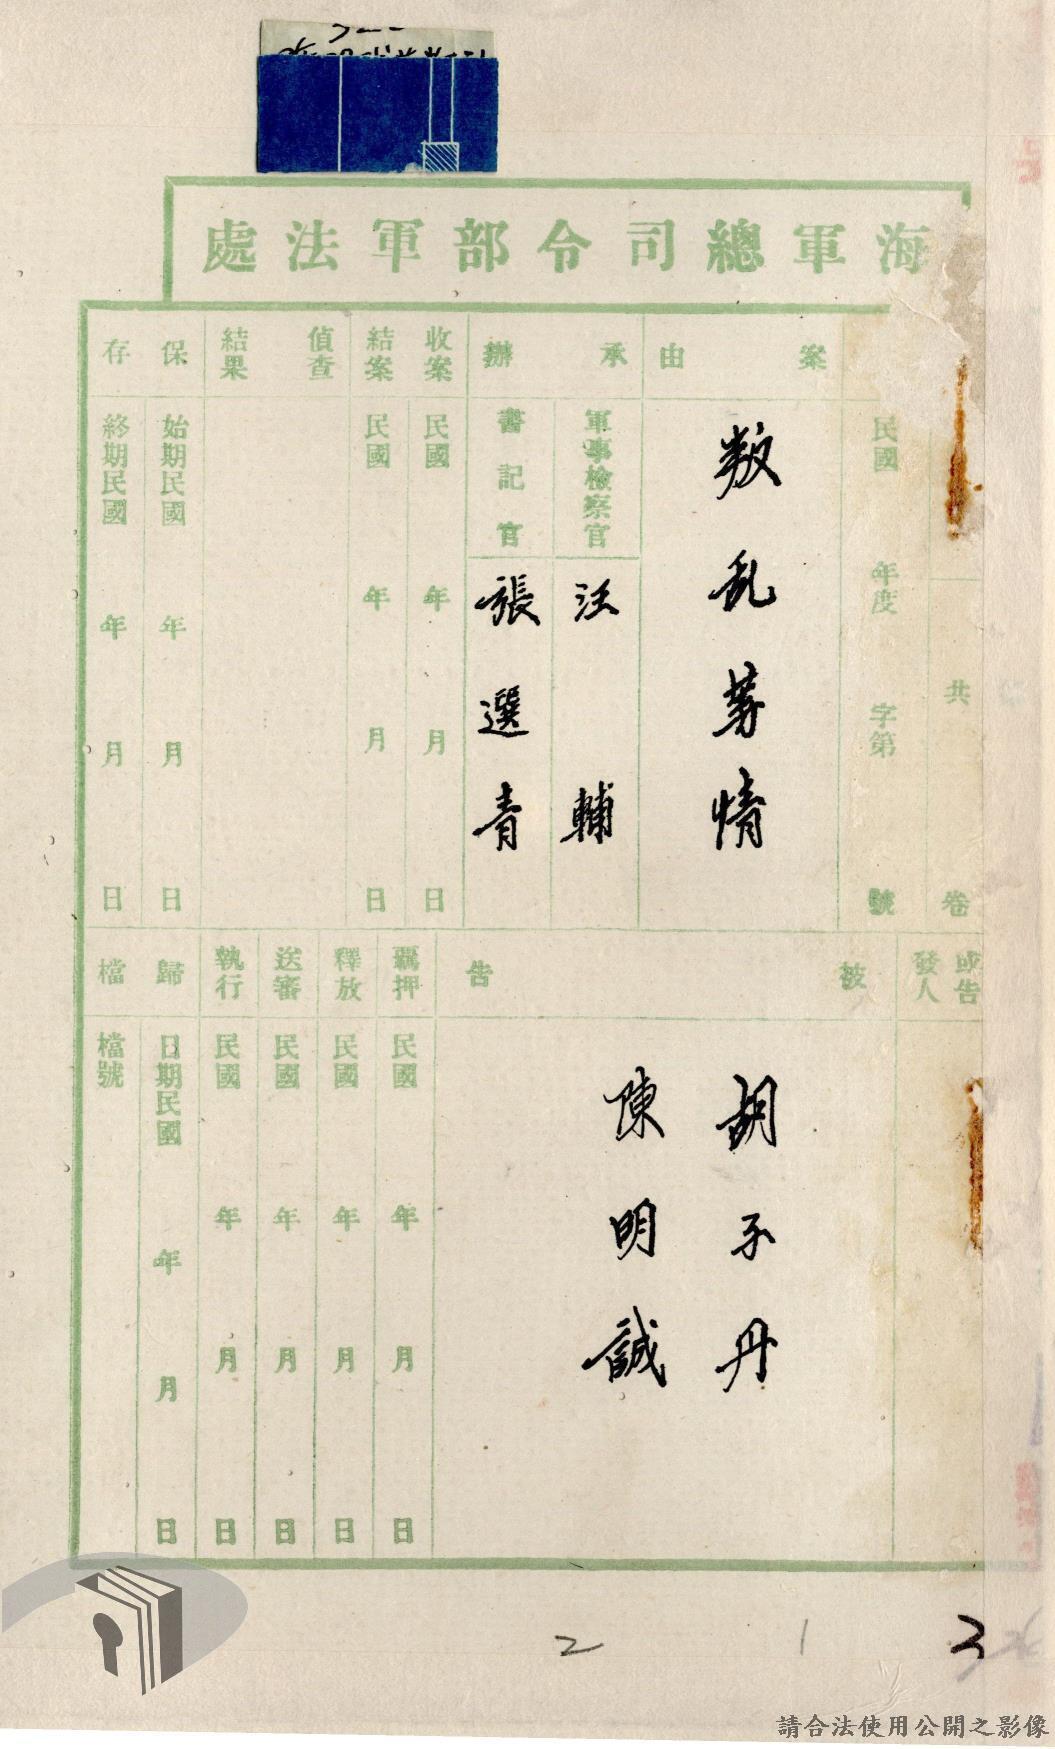 海軍總司令部軍法處
共 卷
民國 年度 字第 號
案由
叛乱等情
承辦
軍事檢察官
汪輔
書記官
張選青
收案
民國 年 月 日
結案
民國 年 月 日
偵查
結果
保存
始期民國 年 月 日
終期民國 年 月 日
或告
發人
被告
胡子丹
陳明誠
羈押
民國 年 月 日
釋放
民國 年 月 日
送審
民國 年 月 日
執行
民國 年 月 日
歸檔
日期民國 年 月 日
檔號
3
1
2
請合法使用公開之影像